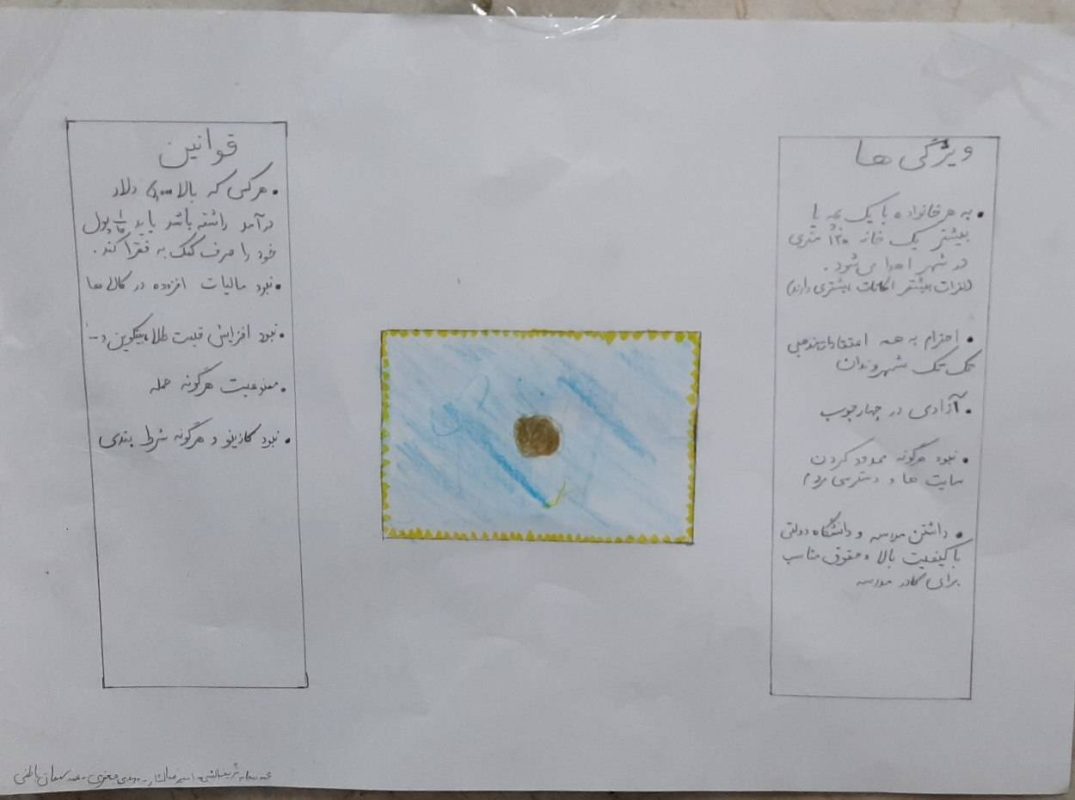 ویژگی ها
• به هر خانواده با یک بچه یا
بیشتر یک خانه ۱۲۰ متری
در شهر اهدا می‌شود.
(نفرات بیشتر امکانات بیشتری دارند)
• احترام به همه اعتقادات مذهبی
تک تک شهروندان
• آزادی در چهارچوب
• نبود هرگونه محدود کردن
سایت ها و دسترسی مردم
• داشتن مدرسه و دانشگاه دولتی
با کیفیت بالا و حقوق مناسب
برای کادر مدرسه
قوانین
• هرکسی که بالا دلار
درآمد داشته باشد باید پول
خود را صرف کمک به فقرا کند.
• نبود مالیات افزوده در کالاها
• نبود افزایش قیمت طلا، بیتکوین و...
• ممنوعیت هرگونه حمله
• نبود کازینو و هرگونه شرط بندی